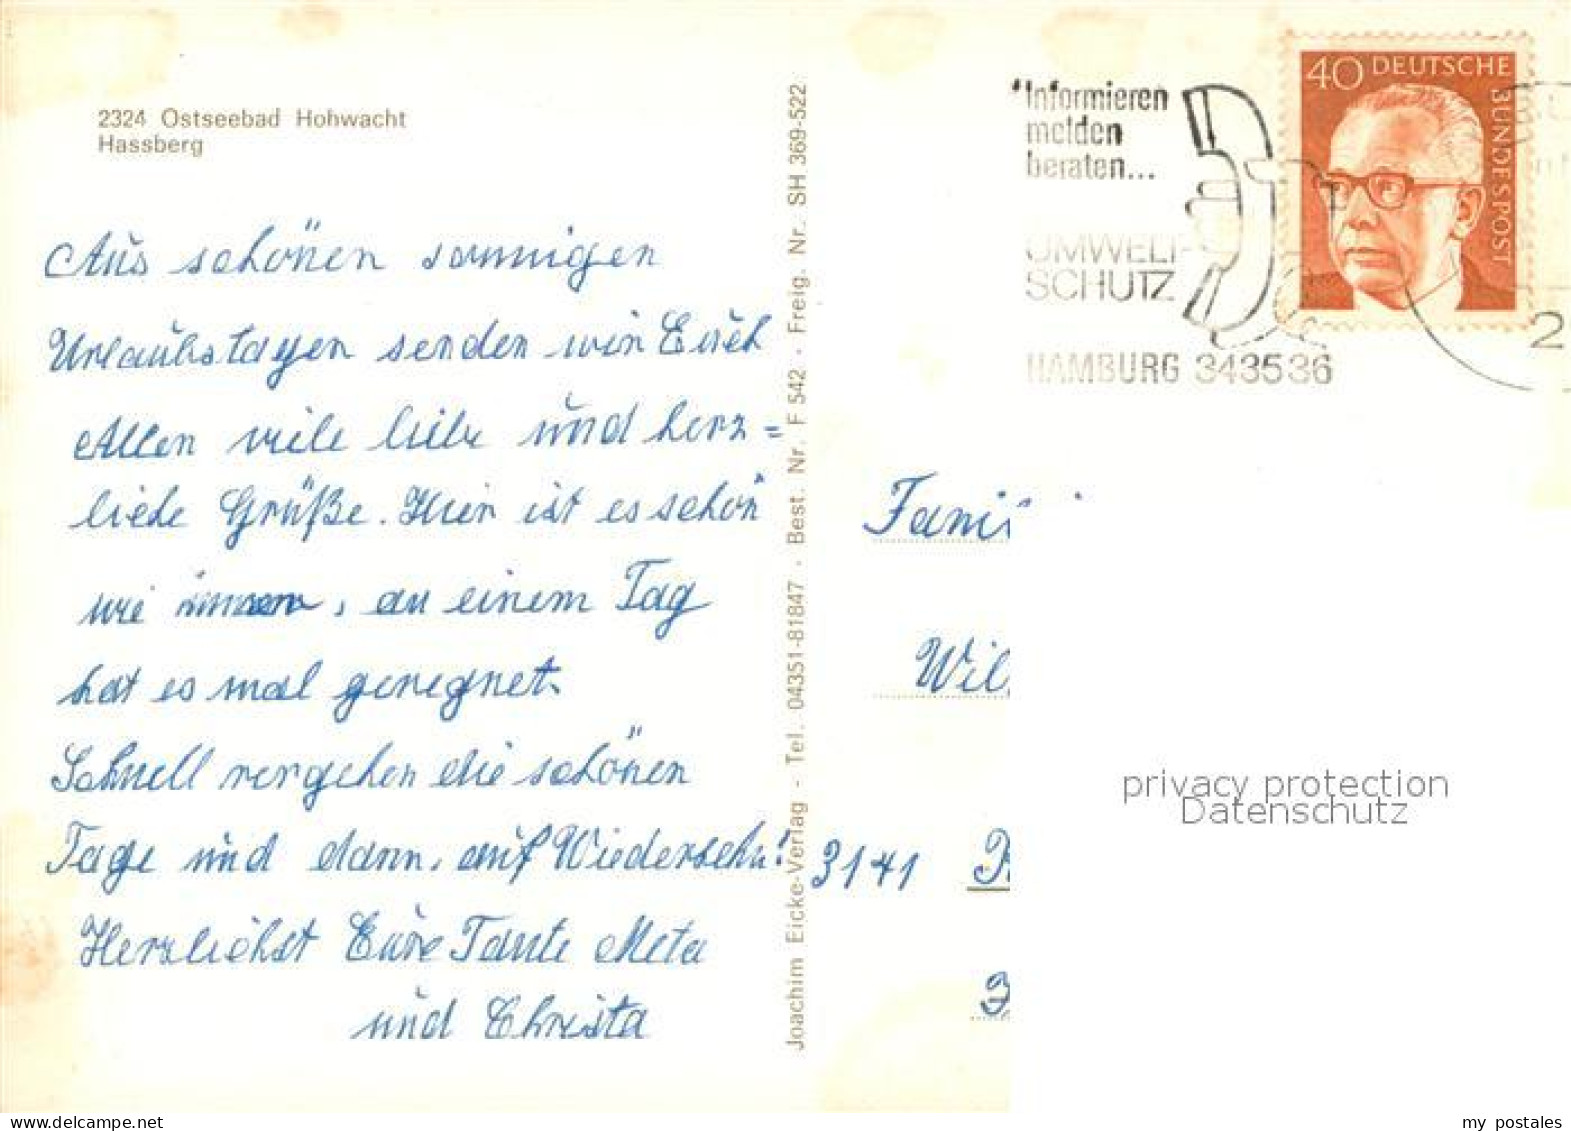 2324 Ostseebad Hohwacht
Hassberg
Aus schönen sonnigen
Urlaubstagen senden wir Euch
Allen viele liebe und herz=
liche Grüße. Hier ist es schön
wie immer, an einem Tag
hat es mal geregnet.
Schnell vergehen die schönen
Tage und dann, auf Wiedersehn!
Herzlichst Eure Tante Meta
und Christa
Joachim Eicke-Verlag - Tel. 04351-81847 · Best. Nr. F 542 · Freig. Nr. SH 369-522
Informieren
melden
beraten...
UMWELT-
SCHUTZ
HAMBURG 343536
40 DEUTSCHE
BUNDESPOST
2
Fami
Wil
3141
privacy protection
Datenschutz
my postales